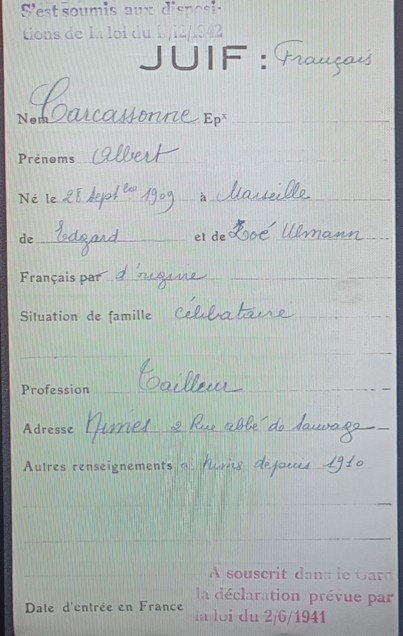 S'est soumis aux disposi-
tions de la loi du 11/12/1942
JUIF : Français
Nom Carcassonne Epx
Prénoms Albert
Né le 28 Septbre 1909 à Marseille
de Edgard et de Zoé Ulmann
Français par d'origine
Situation de famille célibataire
Profession Tailleur
Adresse Nimes 2 Rue abbé de Sauvage
Autres renseignements à Nimes depuis 1910
A souscrit dans le Gard
Date d'entrée en France la déclaration prévue par
la loi du 2/6/1941